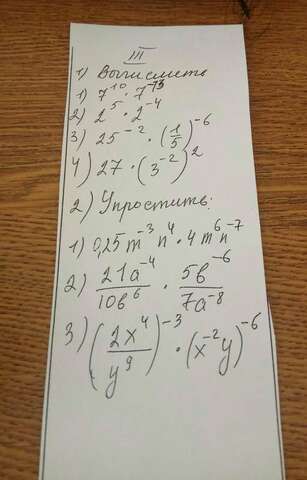 III
1) Вычислить
1) 7¹⁰ · 7⁻¹³
2) 2⁵ · 2⁻⁴
3) 25⁻² · (1/5)⁻⁶
4) 27 · (3⁻²)²
2) Упростить:
1) 0,25m⁻³n⁴ · 4m⁶n⁻⁷
2) 21a⁻⁴/10b⁶ · 5b⁻⁶/7a⁻⁸
3) (2x⁴/y⁹)⁻³ · (x⁻²y)⁻⁶